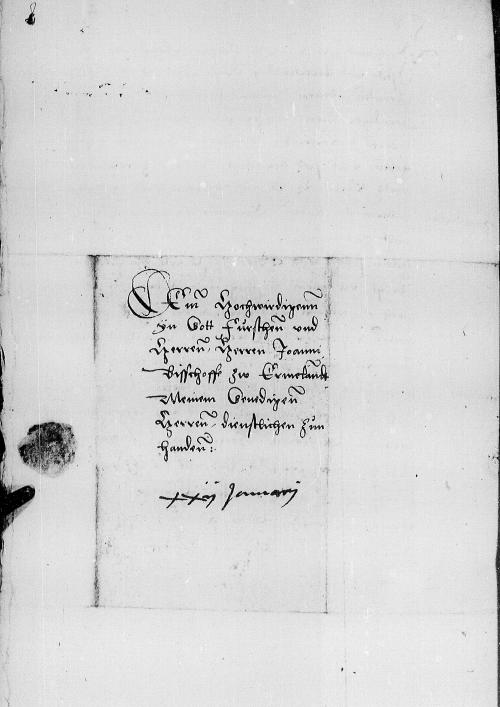 Dem Hochwirdigenn
jn Gott Furschten und
Herren Herren Joanni
Bisschoffe zw Ermelandt
Meinem Genedigen
Herren dienstlichen zun
handen:
xxij Januarij